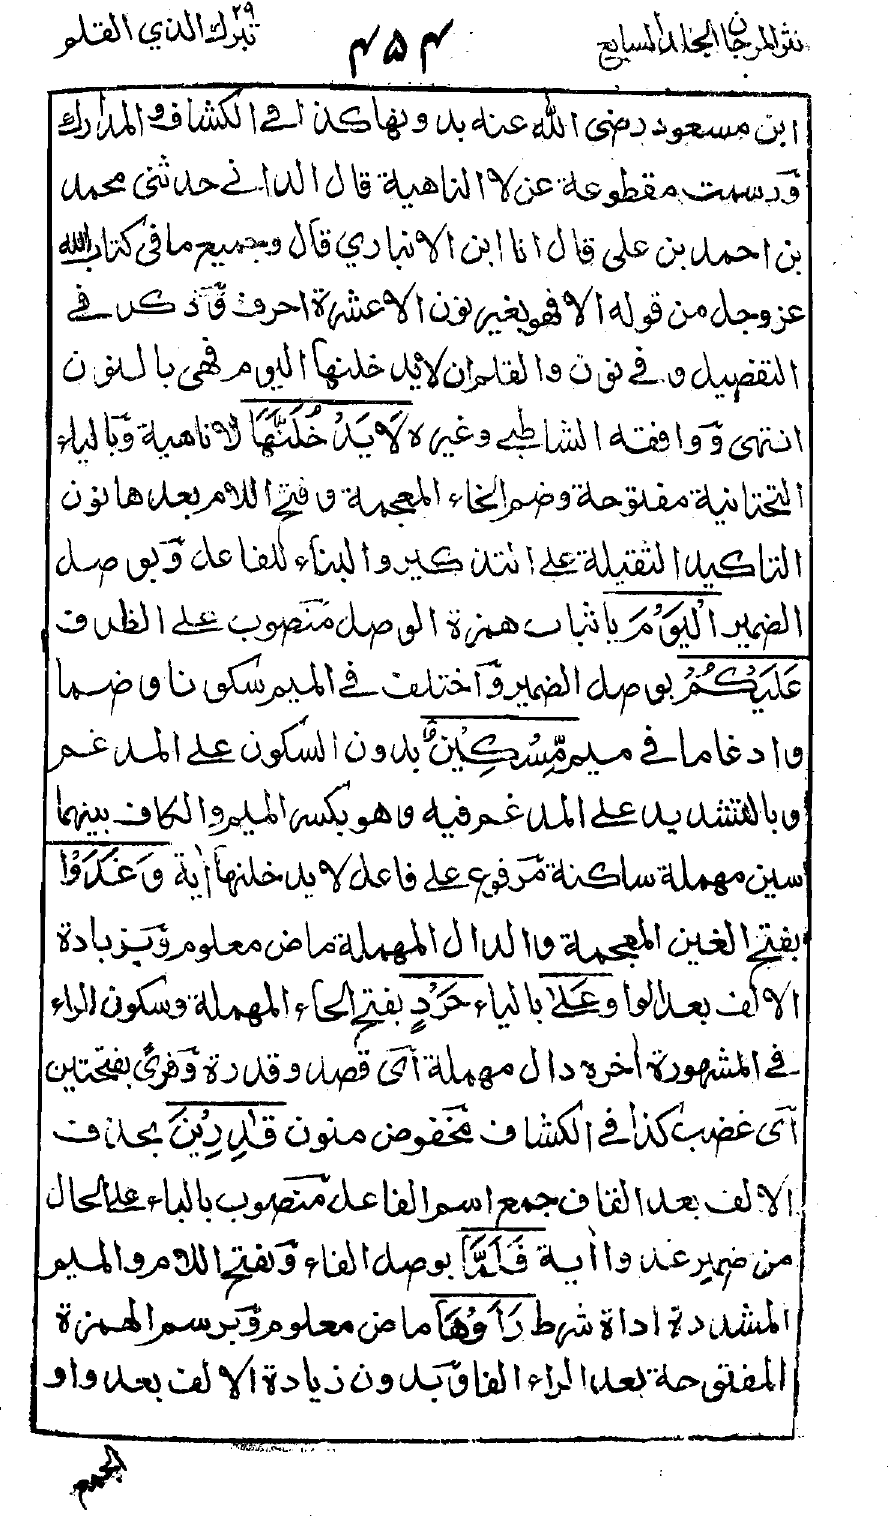 نثر المرجان المجلد السابع
۴۵۴
تبرك الذي ۲۹ القلم
ابن مسعود رضى الله عنه بدونها كذا فى الكشاف والمدارك
وَرسمت مقطوعة عن لا الناهية قال الدانى حدثنى محمد
بن احمد بن على قال انا ابن الانباري قال وجميع ما فى كتاب الله
عز وجل من قوله الا فهو بغير نون الا عشرة احرف وَذكر فى
التفصيل و فى نون والقلم ان لا يدخلنها اليوم فهى بالنون
انتهى وَوافقه الشاطبى وغيره لَا يَدْخُلَنَّهَا لا ناهية وَبالياء
التحتانية مفتوحة وضم الخاء المعجمة و فتح اللام بعدها نون
التاكيد الثقيلة على التذكير والبناء للفاعل وَبوصل
الضمير الْيَوْمَ باثبات همزة الوصل منصوب على الظرف
عَلَيْكُمْ بوصل الضمير وَاختلف فى الميم سكونا و ضما
وادغاما فى ميم مِّسْكِيْنٌ بدون السكون على المدغم
وبالتشديد على المدغم فيه وهو بكسر الميم والكاف بينهما
سين مهملة ساكنة مرفوع على فاعل لا يدخلنها أية وَغَدَوْا
بفتح الغين المعجمة والدال المهملة ماض معلوم وَبزيادة
الالف بعد الواو عَلٰى بالياء حَرْدٍ بفتح الحاء المهملة وسكون الراء
فى المشهورة أخره دال مهملة أى قصد وقدرة وَقرئ بفتحتين
أى غضب كذا فى الكشاف مخفوض منون قٰدِرِيْنَ بحذف
الالف بعد القاف جمع اسم الفاعل منصوب بالياء على الحال
من ضمير غدوا أية فَلَمَّا بوصل الفاء وَبفتح اللام والميم
المشددة اداة شرط رَاَوْهَا ماض معلوم وَبرسم الهمزة
المفتوحة بعد الراء الفا وَبدون زيادة الالف بعد واو
الجمع